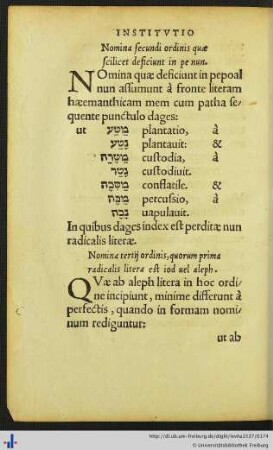 INSTITVTIO
Nomina secundi ordinis quæ
scilicet deficiunt in pe nun.
NOmina quæ deficiunt in pepoal
nun assumunt à fronte literam
hæemanthicam mem cum patha se-
quente punctulo dages:
ut מַטָּע plantatio, à
נָטַע plantauit: &
custodia, à
נָטַר custodiuit.
מַסֵּכָה conflatile. &
מַכָּה percussio, à
נָכָה uapulauit.
In quibus dages index est perditæ nun
radicalis literæ.
Nomina tertij ordinis, quorum prima
radicalis litera est iod uel aleph.
QVæ ab aleph litera in hoc ordi-
ne incipiunt, minime differunt à
perfectis, quando in formam nomi-
num rediguntur:
ut ab
© Universitätsbibliothek Freiburg